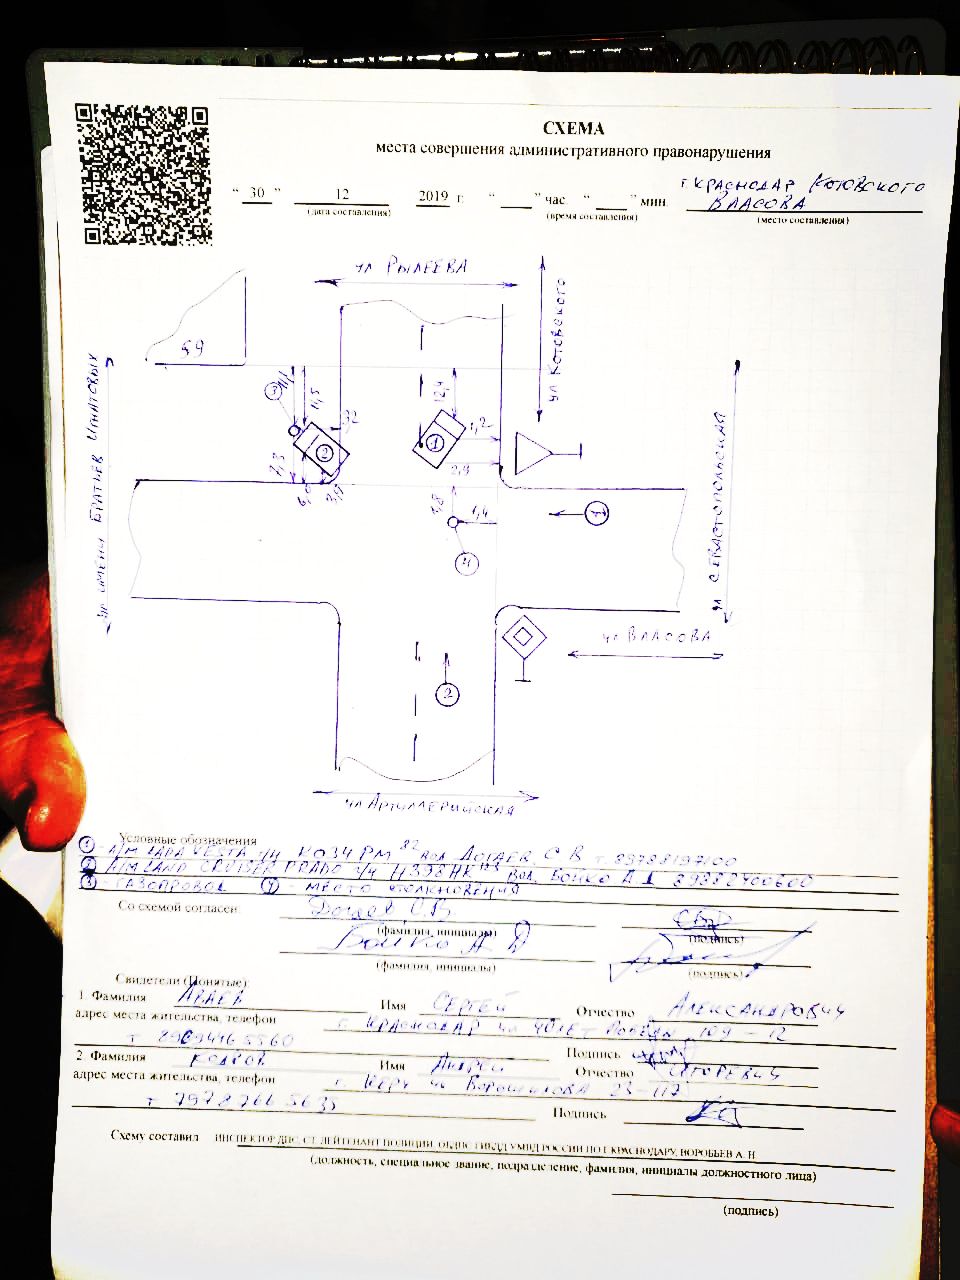 СХЕМА
места совершения административного правонарушения
" 30 " 12 2019 г. " ___ " час " ___ " мин. г. КРАСНОДАР КОТОВСКОГО
ВЛАСОВА
(дата составления) (время составления) (место составления)
ул РЫЛЕЕВА
ул КОТОВСКОГО
59
3
11,5
12,4
1,2
2
1
2,4
1,8
1,4
1
4
ул СЕВАСТОПОЛЬСКАЯ
БРАТЬЕВ ИГНАТОВЫХ
ул ВЛАСОВА
2
ул АРТИЛЛЕРИЙСКАЯ
Условные обозначения
1 - А/М LADA VESTA г/н К034РМ 82 вод С В т.
2 - А/М LAND CRUISER PRADO г/н вод. БОЙКО А Д
3 - ГАЗОПРОВОД 4 - МЕСТО СТОЛКНОВЕНИЯ
Со схемой согласен С.В
(фамилия, инициалы) (подпись)
Бойко А Д
(фамилия, инициалы) (подпись)
Свидетели (Понятые):
1. Фамилия Имя СЕРГЕЙ Отчество АЛЕКСАНДРОВИЧ
адрес места жительства, телефон г. КРАСНОДАР ул 40 ЛЕТ ПОБЕДЫ 109 - 12
т Подпись
2. Фамилия Имя АНДРЕЙ Отчество ИГОРЕВИЧ
адрес места жительства, телефон г. КЕРЧ ул Ворошилова 23-117
т 7978 766 5635 Подпись
Схему составил ИНСПЕКТОР ДПС, СТ. ЛЕЙТЕНАНТ ПОЛИЦИИ, ОБДПС ГИБДД УМВД РОССИИ ПО Г. КРАСНОДАРУ, ВОРОБЬЕВ А. Н
(должность, специальное звание, подразделение, фамилия, инициалы должностного лица)
(подпись)